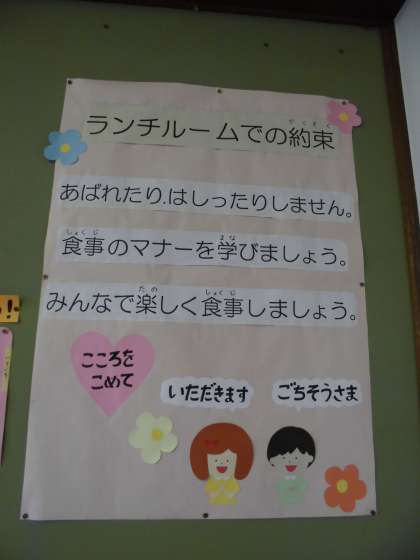 ランチルームでの約束
あばれたり.はしったりしません。
食事のマナーを学びましょう。
みんなで楽しく食事しましょう。
こころを
こめて
いただきます
ごちそうさま